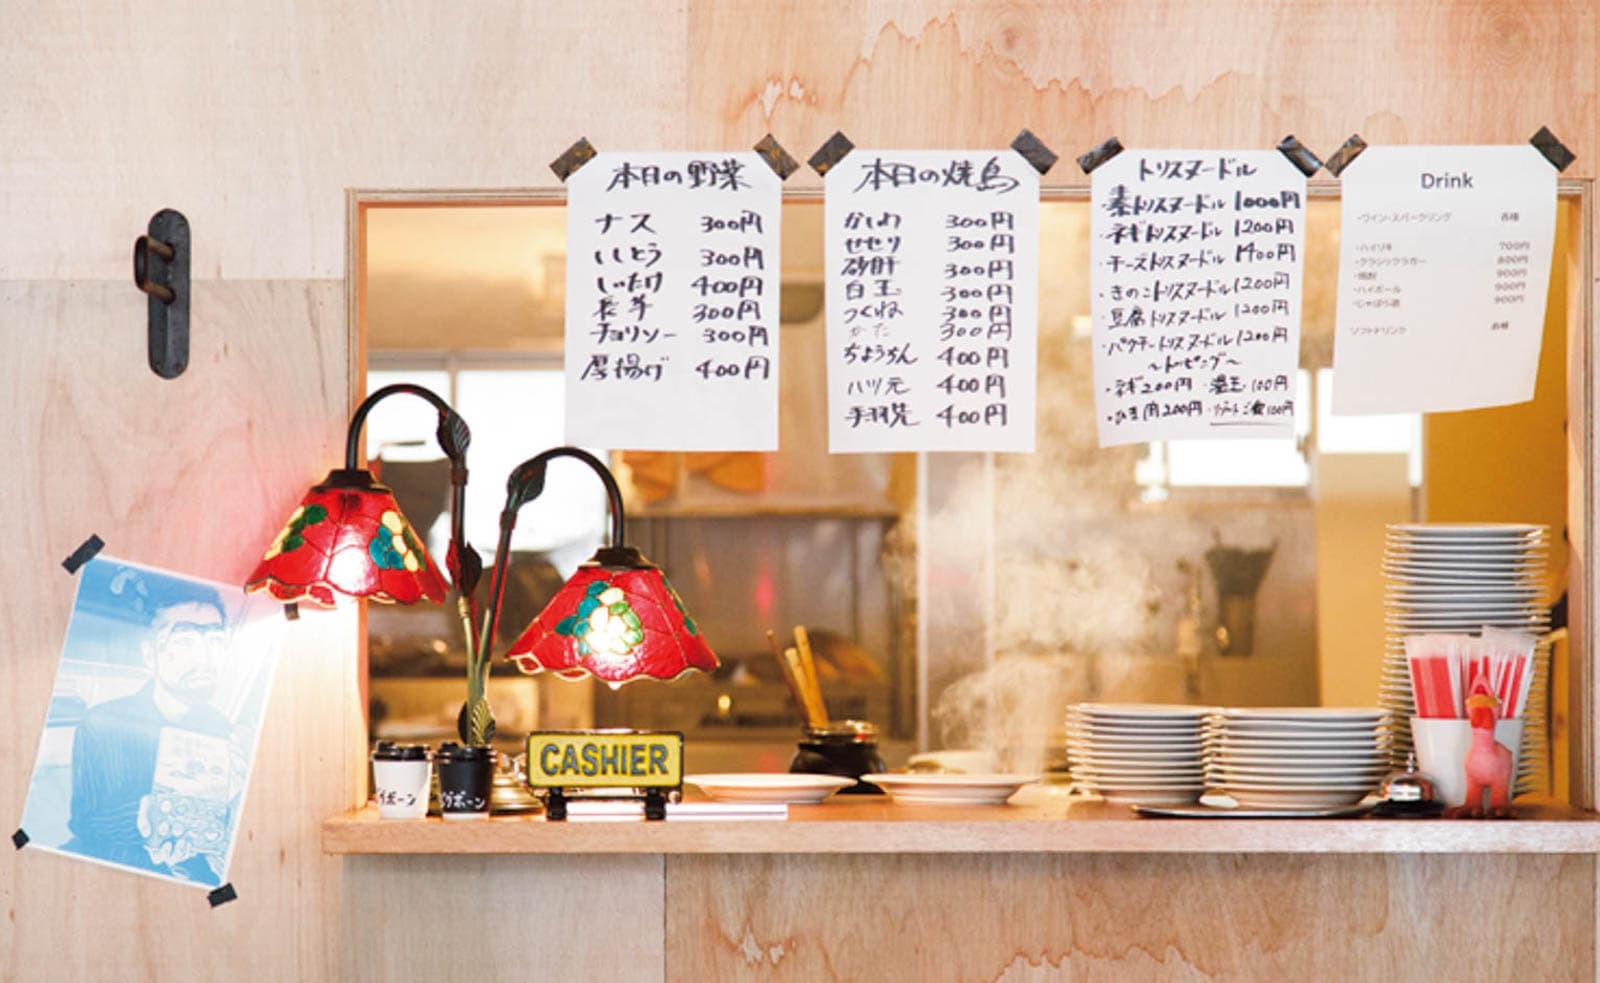 本日の野菜
ナス 300円
ししとう 300円
しいたけ 400円
長芋 300円
チョリソー 300円
厚揚げ 400円
本日の焼鳥
かしわ 300円
せせり 300円
砂肝 300円
白玉 300円
つくね 300円
かた 300円
ちょうちん 400円
ハツ元 400円
手羽先 400円
トリスヌードル
・素トリスヌードル 1000円
・ネギトリスヌードル 1200円
・チーズトリスヌードル 1400円
・きのこトリスヌードル 1200円
・豆腐トリスヌードル 1200円
・パクチートリスヌードル 1200円
〜トッピング〜
・ネギ 200円 ・温玉 100円
・ひき肉 200円 ・リゾットご飯 100円
Drink
・ワイン・スパークリング 各種
・ハイリキ 700円
・クラシックラガー 800円
・焼酎 900円
・ハイボール 900円
・じゃばら酒 900円
ソフトドリンク 各種
CASHIER
グポーン
グポーン